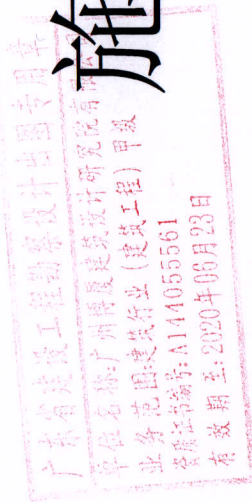 广东省建设工程勘察设计出图专用章
单位名称:广州博厦建筑设计研究院有限公司
业务范围:建筑行业(建筑工程)甲级
资质证书编号:A144055561
有效期至:2020年06月23日
施